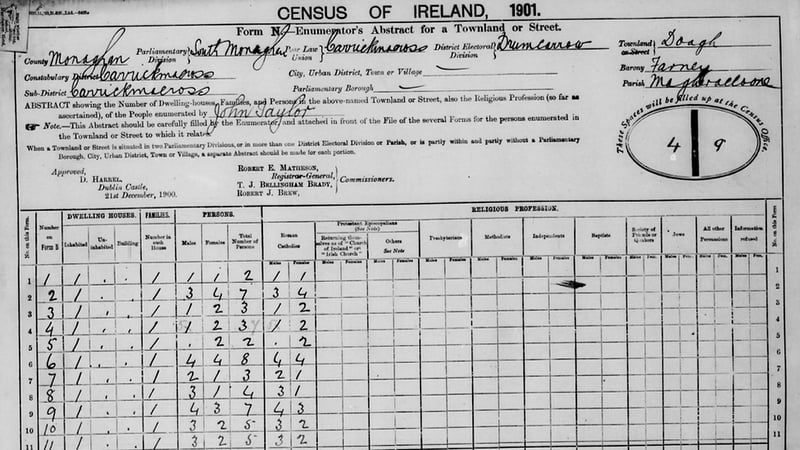 CENSUS OF IRELAND, 1901.
Form N.—Enumerator's Abstract for a Townland or Street.
County Monaghan Parliamentary Division South Monaghan Poor Law Union Carrickmacross District Electoral Division Drumcarrow Townland or Street Doagh
Constabulary District Carrickmacross City, Urban District, Town or Village Barony Farney
Sub-District Carrickmacross Parliamentary Borough Parish Magheracloone
ABSTRACT showing the Number of Dwelling-houses, Families, and Persons in the above-named Townland or Street, also the Religious Profession (so far as
ascertained), of the People enumerated by John Taylor
Note.—This Abstract should be carefully filled by the Enumerator, and attached in front of the File of the several Forms for the persons enumerated in
the Townland or Street to which it relates
When a Townland or Street is situated in two Parliamentary Divisions, or in more than one District Electoral Division or Parish, or is partly within and partly without a Parliamentary
Borough, City, Urban District, Town, or Village, a separate Abstract should be made for each portion.
These Spaces will be filled up at the Census Office.
4 9
Approved,
D. HARREL,
Dublin Castle,
21st December, 1900.
ROBERT E. MATHESON,
Registrar-General,
T. J. BELLINGHAM BRADY,
ROBERT J. BREW,
Commissioners.
DWELLING HOUSES. FAMILIES. PERSONS. RELIGIOUS PROFESSION.
No. on this Form. Number on Form B Inhabited Un-inhabited Building Number in each House Males Females Total Number of Persons Roman Catholics Protestant Episcopalians (See Note) Returning themselves as of "Church of Ireland" or "Irish Church" Others See Note Presbyterians Methodists Independents Baptists Society of Friends or Quakers Jews All other Persuasions Information refused No. on this Form.
Males Females Males Females Males Females Males Females Males Females Males Females Males Females Males Females Males Females Males Females Males Females
1 1 1 . . 1 1 1 2 1 1 1
2 2 1 . . 1 3 4 7 3 4 2
3 3 1 . . 1 1 2 3 1 2 3
4 4 1 . . 1 1 2 3 1 2 4
5 5 1 . . 1 . 2 2 . 2 5
6 6 1 . . 1 4 4 8 4 4 6
7 7 1 . . 1 2 1 3 2 1 7
8 8 1 . . 1 3 1 4 3 1 8
9 9 1 . . 1 4 3 7 4 3 9
10 10 1 . . 1 3 2 5 3 2 10
11 11 1 . . 1 3 2 5 3 2 11